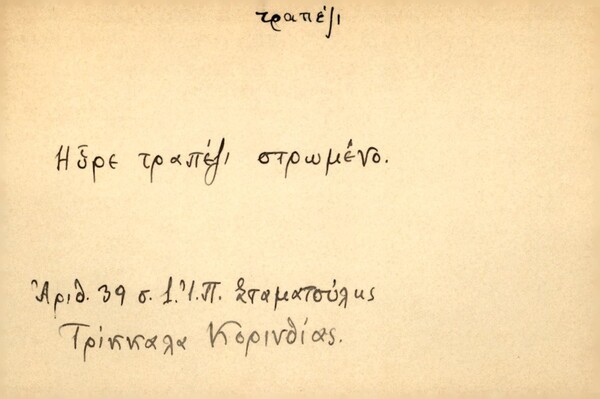 τραπέζι
Ηὗρε τραπέζι στρωμένο.
Ἀριθ. 39 σ. 1. Ἰ. Π. Σταματούλης
Τρίκκαλα Κορινθίας.